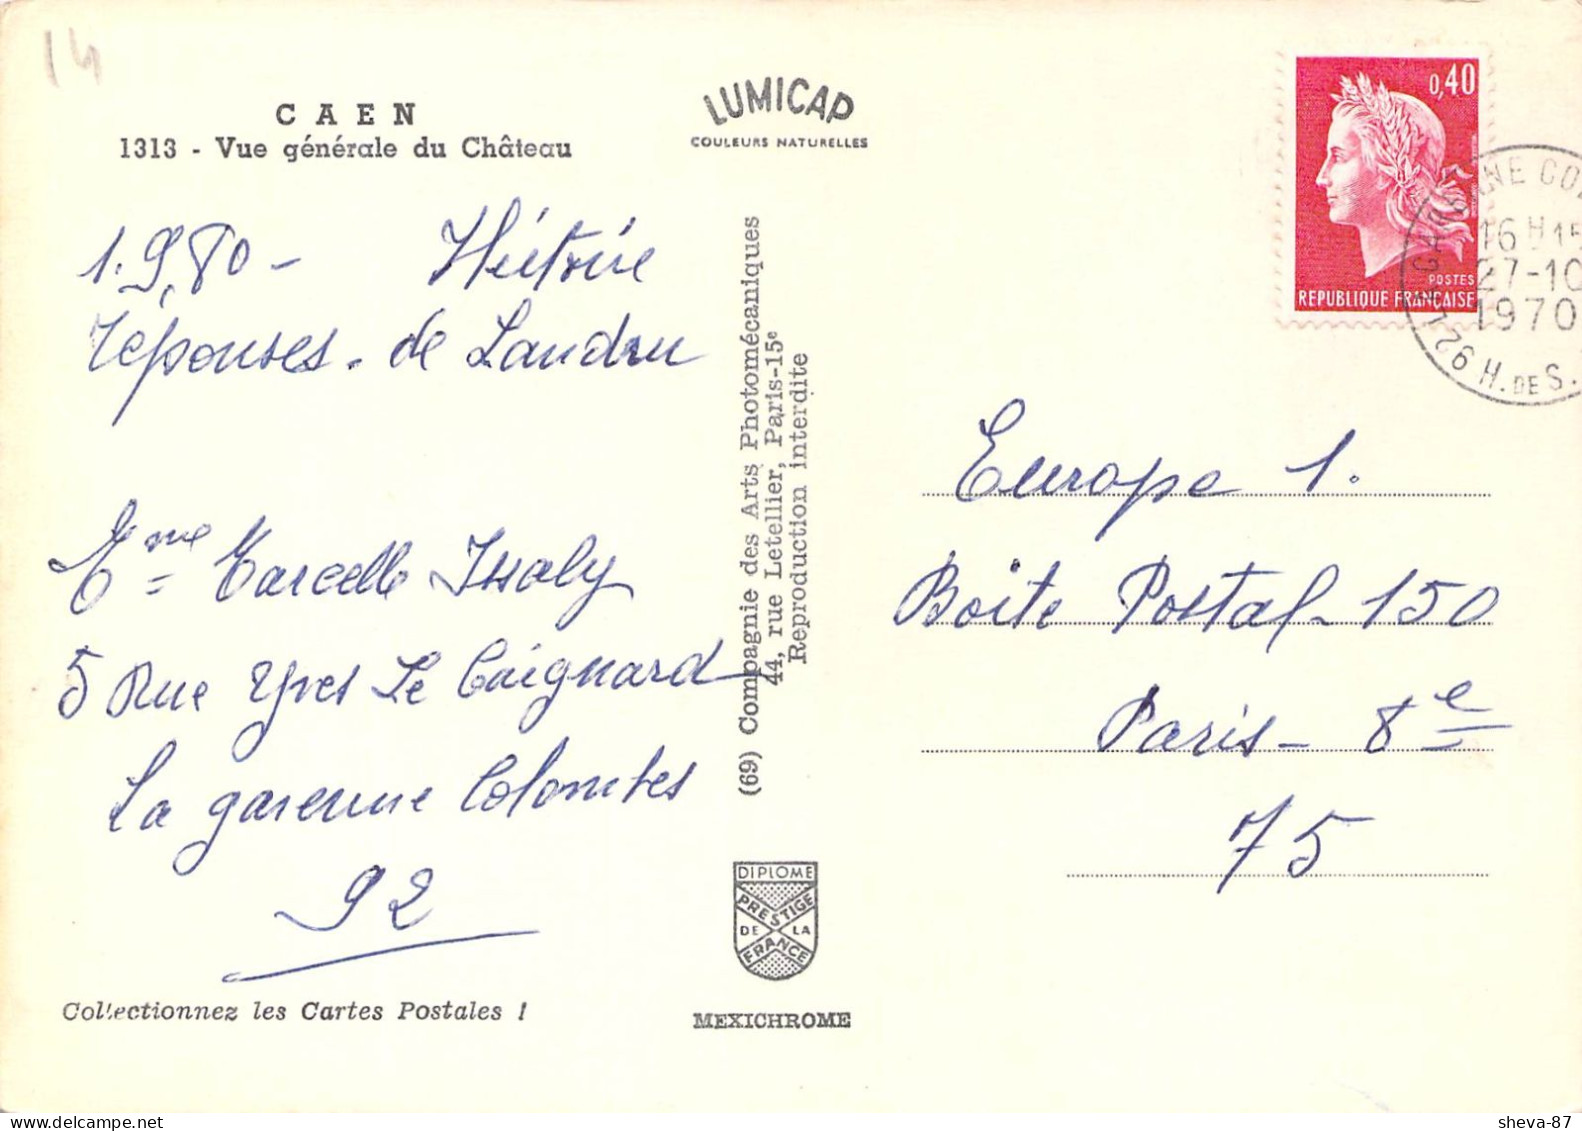 14
CAEN
1313 - Vue générale du Château
1.9.80 -
réponses. de Landru
Mme Marcelle Issaly
5 Rue Yves Le Caignard
La garenne Colombes
92
Collectionnez les Cartes Postales !
LUMICAP
COULEURS NATURELLES
(69) Compagnie des Arts Photomécaniques
44, rue Letellier, Paris-15e
Reproduction interdite
DIPLOME
PRESTIGE
DE LA
FRANCE
MEXICHROME
0,40
POSTES
REPUBLIQUE FRANÇAISE
16 H 15
27-10
1970
92 H. DE S.
Europe 1.
Boite Postal - 150
Paris - 8e
75
sheva-87